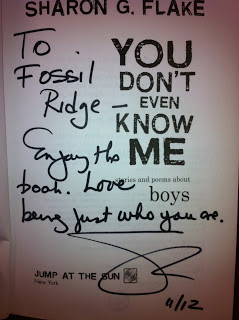 SHARON G. FLAKE
To
Fossil
Ridge –
YOU
DON'T
EVEN
KNOW
ME
stories and poems about
boys
Enjoy the
book. Love
being just who you are.
JUMP AT THE SUN
New York
4/12